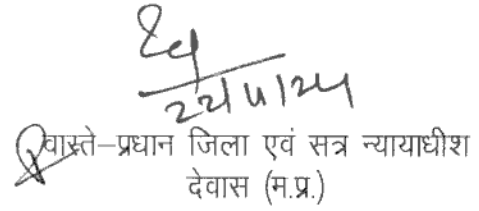 वास्ते–प्रधान जिला एवं सत्र न्यायाधीश
देवास (म.प्र.)